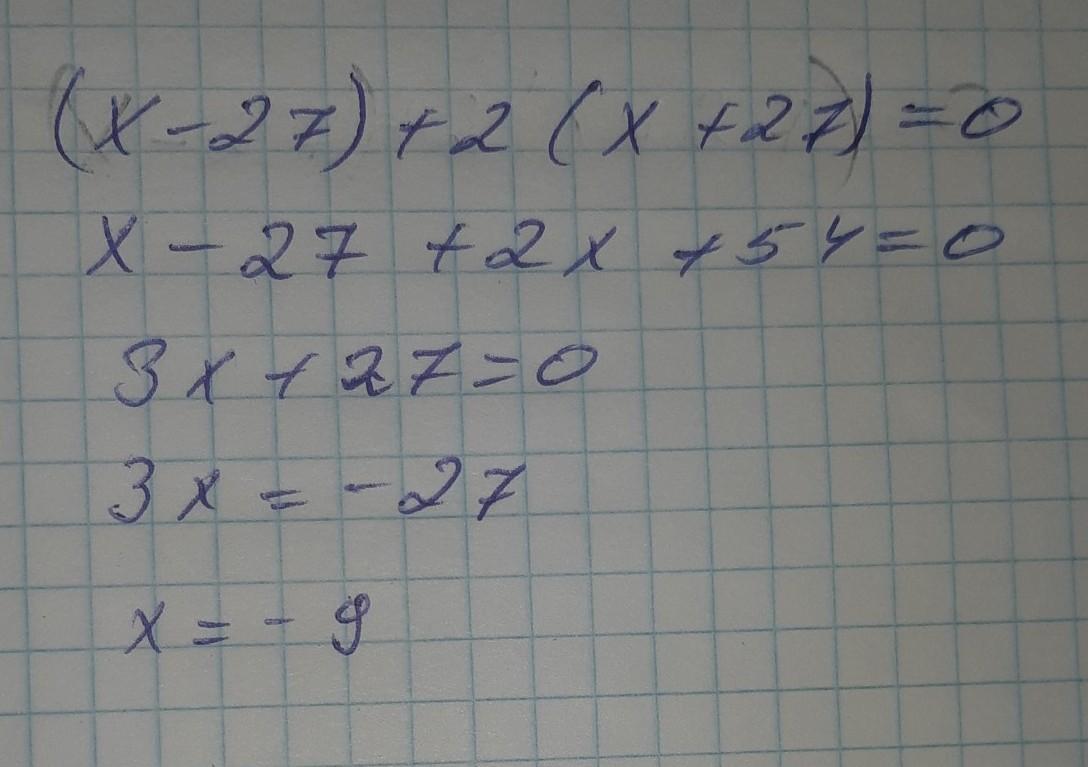 (x-27)+2(x+27)=0
x-27+2x+54=0
3x+27=0
3x=-27
x=-9